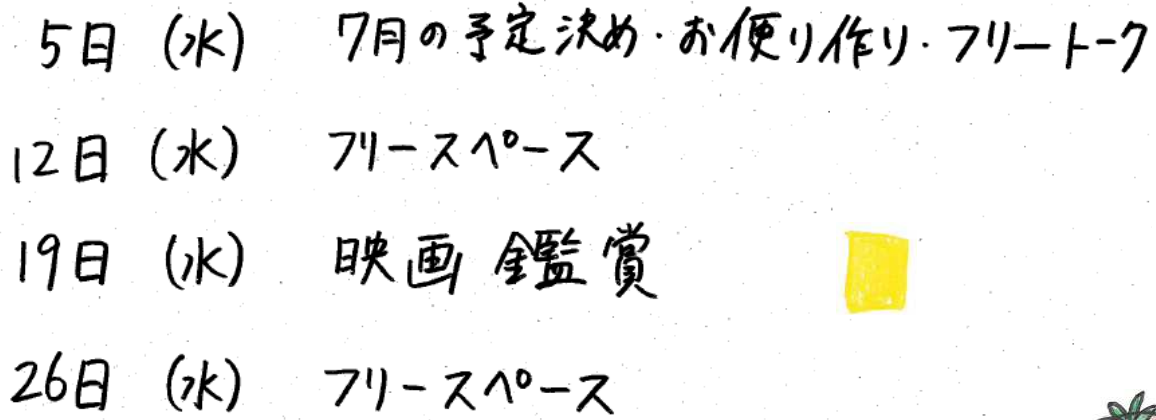 5日 (水) 7月の予定決め・お便り作り・フリートーク
12日 (水) フリースペース
19日 (水) 映画鑑賞
26日 (水) フリースペース